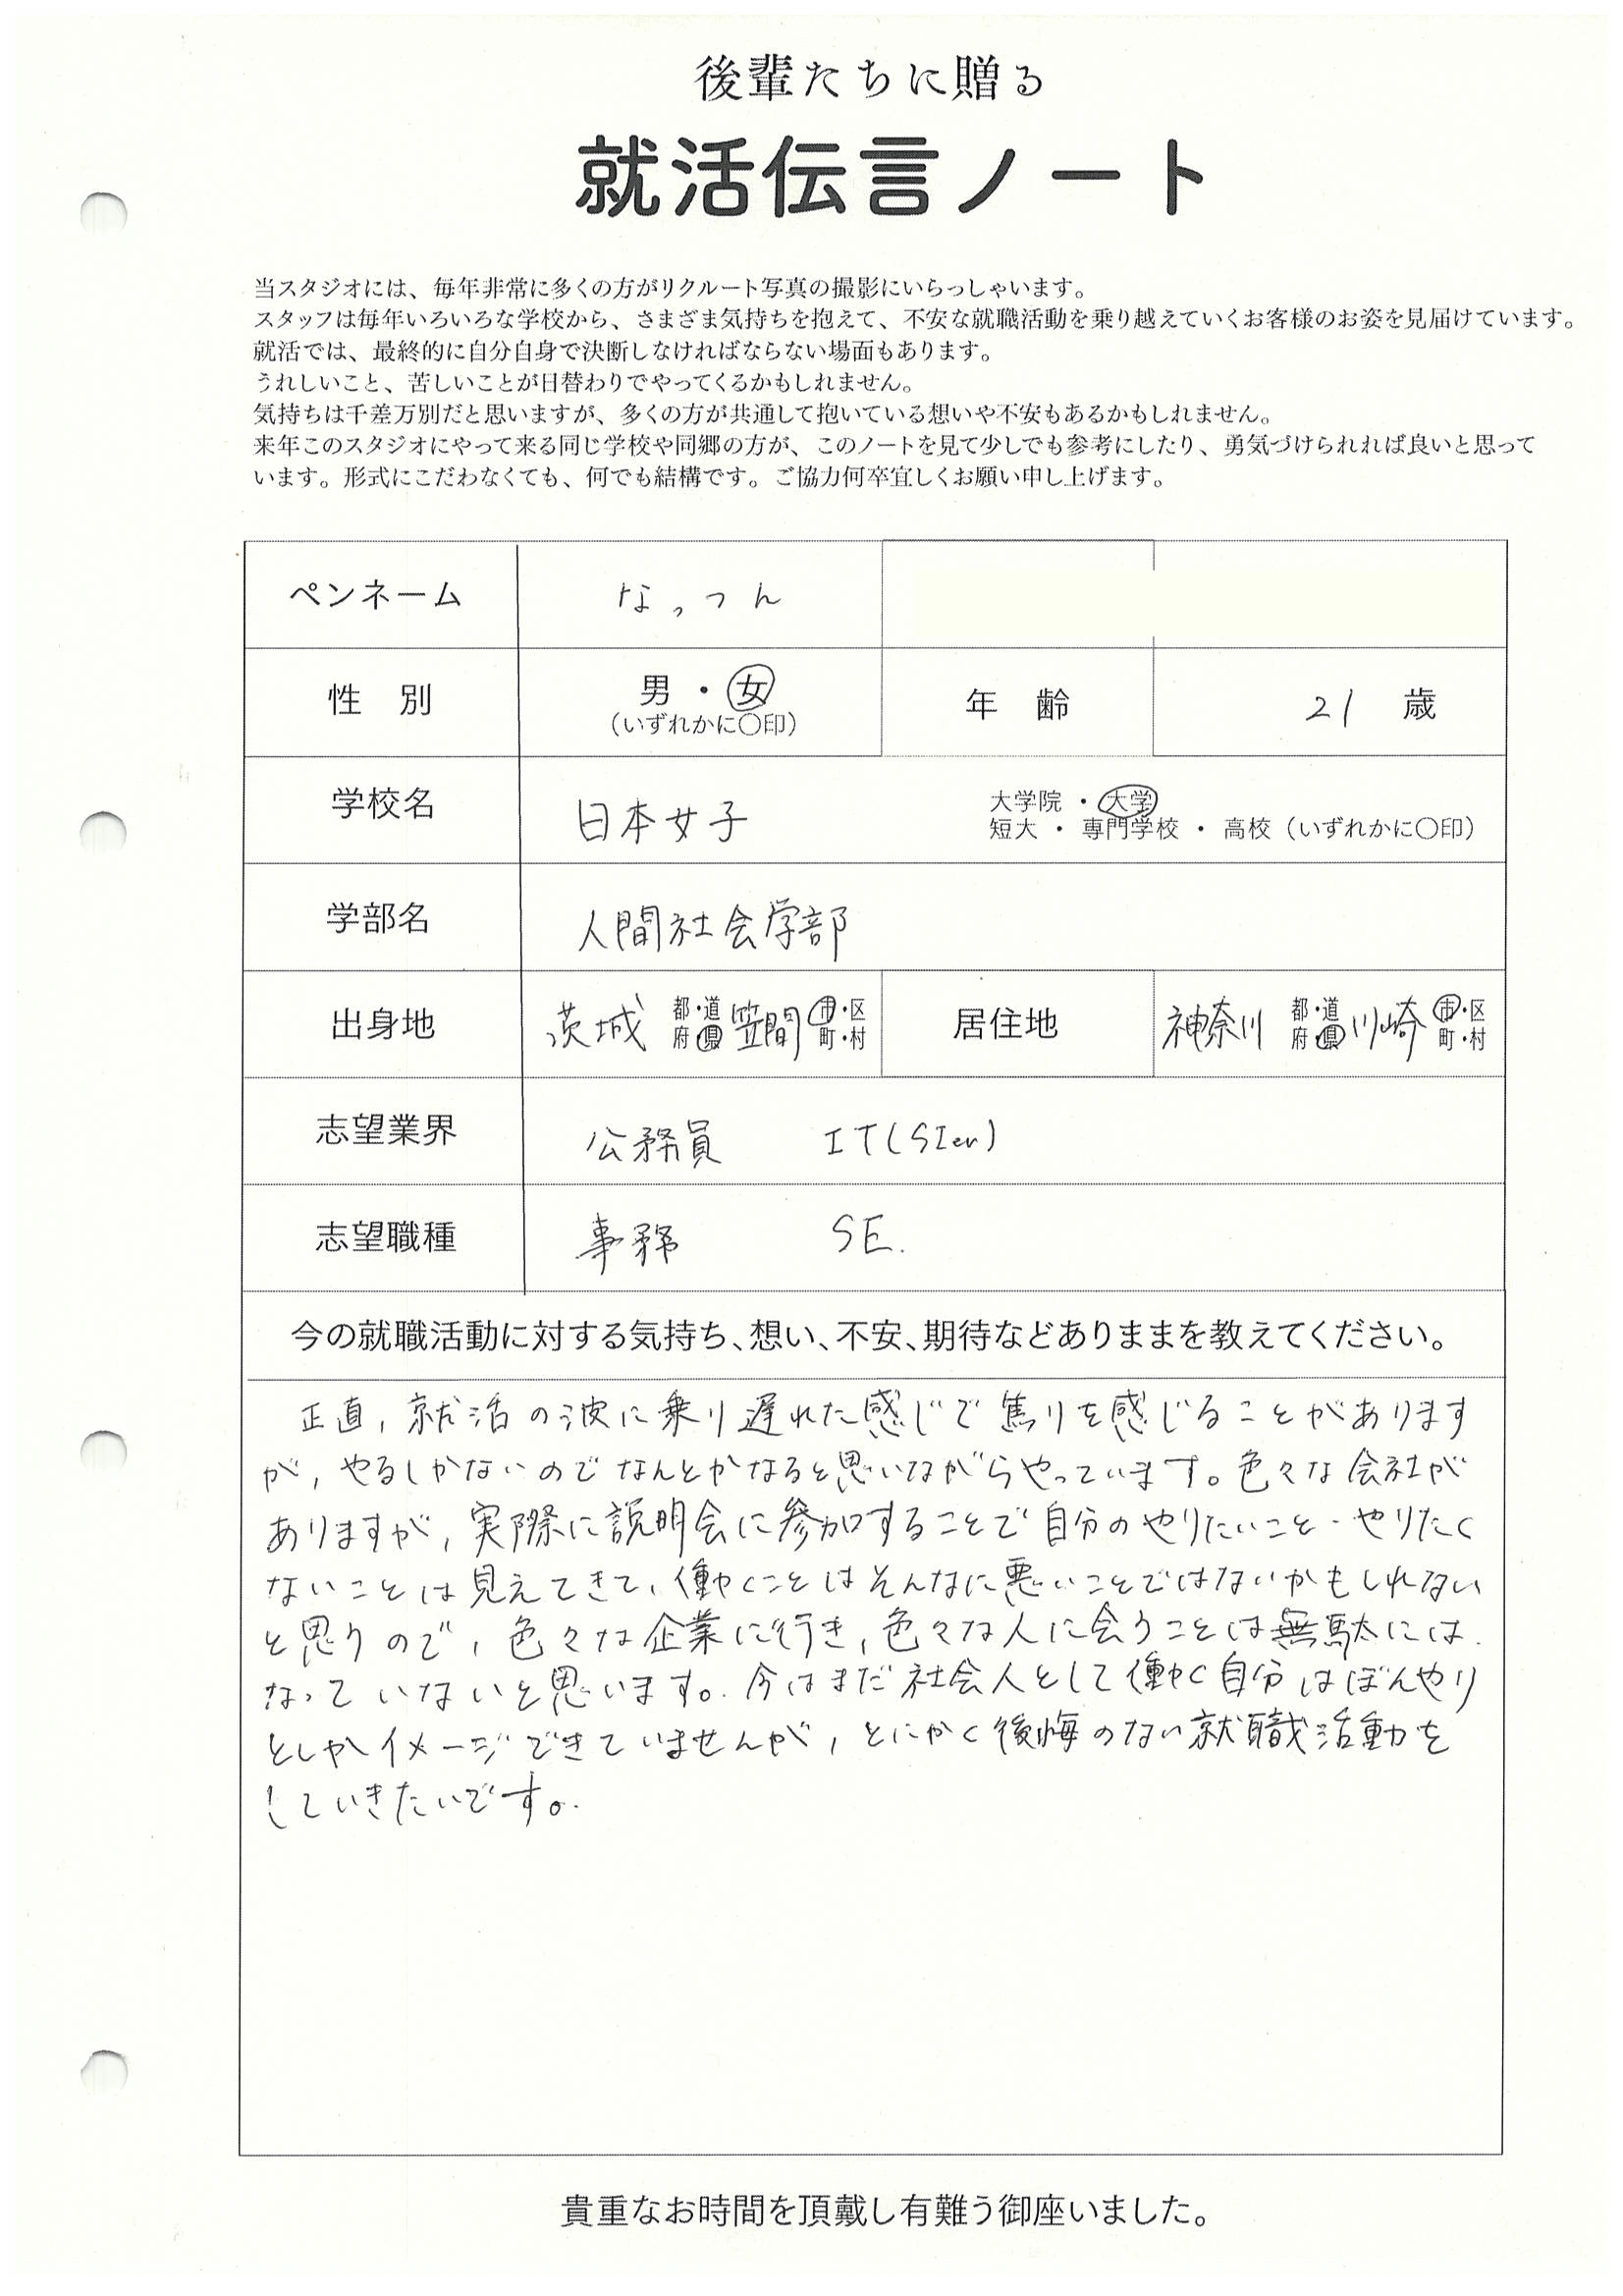 後輩たちに贈る
就活伝言ノート
当スタジオには、毎年非常に多くの方がリクルート写真の撮影にいらっしゃいます。
スタッフは毎年いろいろな学校から、さまざま気持ちを抱えて、不安な就職活動を乗り越えていくお客様のお姿を見届けています。
就活では、最終的に自分自身で決断しなければならない場面もあります。
うれしいこと、苦しいことが日替わりでやってくるかもしれません。
気持ちは千差万別だと思いますが、多くの方が共通して抱いている想いや不安もあるかもしれません。
来年このスタジオにやって来る同じ学校や同郷の方が、このノートを見て少しでも参考にしたり、勇気づけられれば良いと思って
います。形式にこだわなくても、何でも結構です。ご協力何卒宜しくお願い申し上げます。
ペンネーム なっつん
性 別 男 ・ 女 (いずれかに○印) 年 齢 21 歳
学校名 日本女子 大学院 ・ 大学
短大 ・ 専門学校 ・ 高校 (いずれかに○印)
学部名 人間社会学部
出身地 茨城 都・道府・県 笠間 市・区町・村 居住地 神奈川 都・道府・県 川崎 市・区町・村
志望業界 公務員 IT(SIer)
志望職種 事務 SE.
今の就職活動に対する気持ち、想い、不安、期待などありままを教えてください。
正直, 就活の波に乗り遅れた感じで焦りを感じることがあります
が, やるしかないのでなんとかなると思いながらやっています。色々な会社が
ありますが, 実際に説明会に参加することで自分のやりたいこと・やりたく
ないことは見えてきて, 働くことはそんなに悪いことではないかもしれない
と思うので, 色々な企業に行き, 色々な人に会うことは無駄には
なっていないと思います。今はまだ社会人として働く自分はぼんやり
としかイメージできていませんが, とにかく後悔のない就職活動を
していきたいです。
貴重なお時間を頂戴し有難う御座いました。